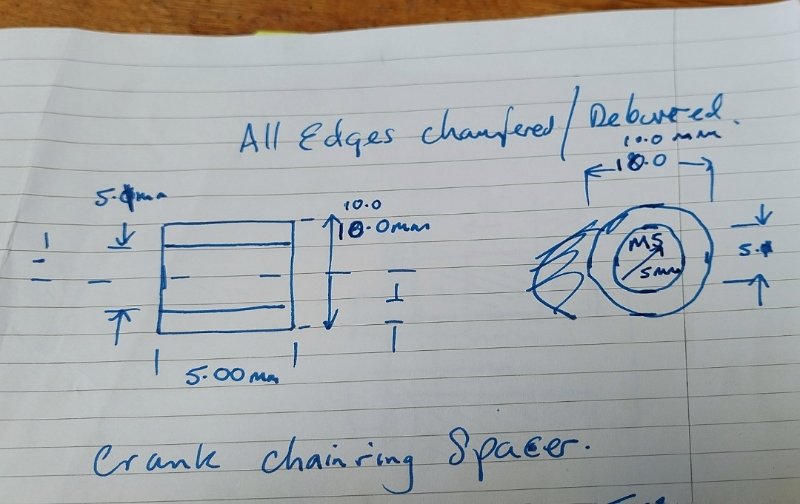 All Edges chamfered / Deburred.
10.0 mm
10.0
5. mm
10.0
10.0mm
M5
5mm
5.
5.00mm
Crank chainring Spacer.